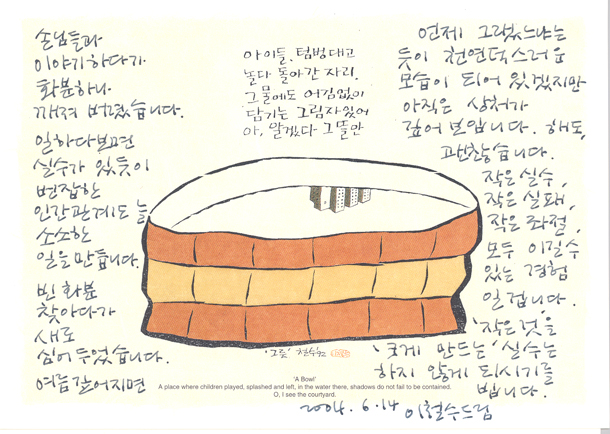 손님들과
이야기하다가
화분하나
깨져 버렸습니다.
일하다보면
실수가 있듯이
번잡한
인간관계도 늘
소소한
일을 만듭니다.
빈 화분
찾아다가
새로
심어 두었습니다.
여름 깊어지면
언제 그랬느냐는
듯이 천연덕스러운
모습이 되어 있겠지만
아직은 상처가
깊어 보입니다. 해도,
괜찮습니다.
작은 실수,
작은 실패,
작은 좌절,
모두 이길수
있는 경험
일 겁니다.
'작은 것을
크게 만드는' 실수는
하지 않게 되시기를
빕니다.
2004. 6. 14 이철수드림
아이들. 텀벙대고
놀다 돌아간 자리.
그 물에도 어김없이
담기는 그림자있어
아, 알겠다 그 뜰안
'그릇' 철수
'A Bowl'
A place where children played, splashed and left, in the water there, shadows do not fail to be contained.
O, I see the courtyard.